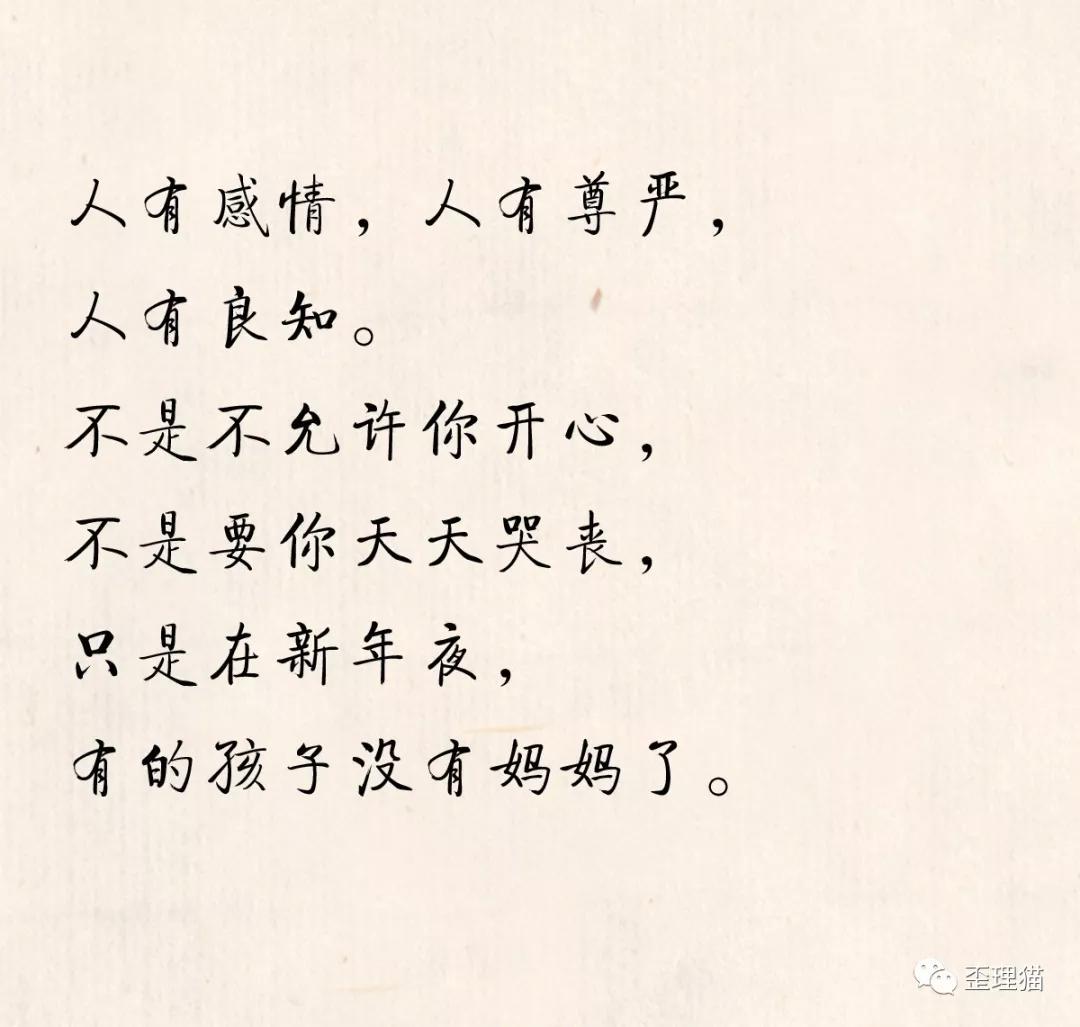 人有感情，人有尊严，
人有良知。
不是不允许你开心，
不是要你天天哭丧，
只是在新年夜，
有的孩子没有妈妈了。
歪理猫